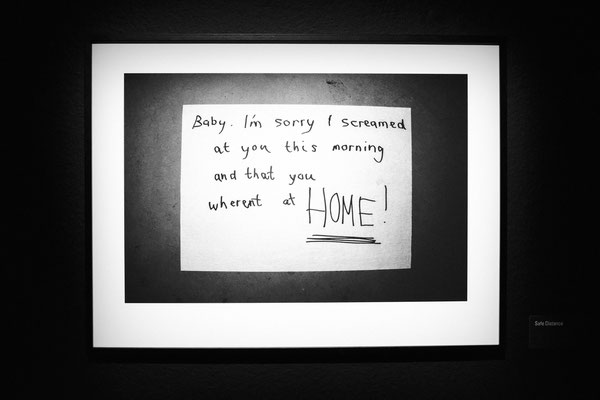 Baby. I'm sorry I screamed
at you this morning
and that you
wherent at HOME!
Safe Distance